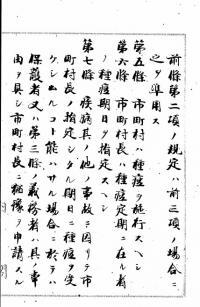 前條第二項ノ規定ハ前三項ノ場合ニ
之ヲ準用ス
第五條 市町村ハ種痘ヲ施行スヘシ
第六條 市町村長ハ種痘定期ニ在ル者
ノ種痘期日ヲ指定スヘシ
第七條 疾病其ノ他ノ事故ニ因リテ市
町村長ノ指定シタル期日ニ種痘ヲ受
ケシムルコト能ハサル場合ニ於テハ
保護者又ハ第三條ノ義務者ハ其ノ事
由ヲ具シ市町村長ニ猶豫ヲ申請スル